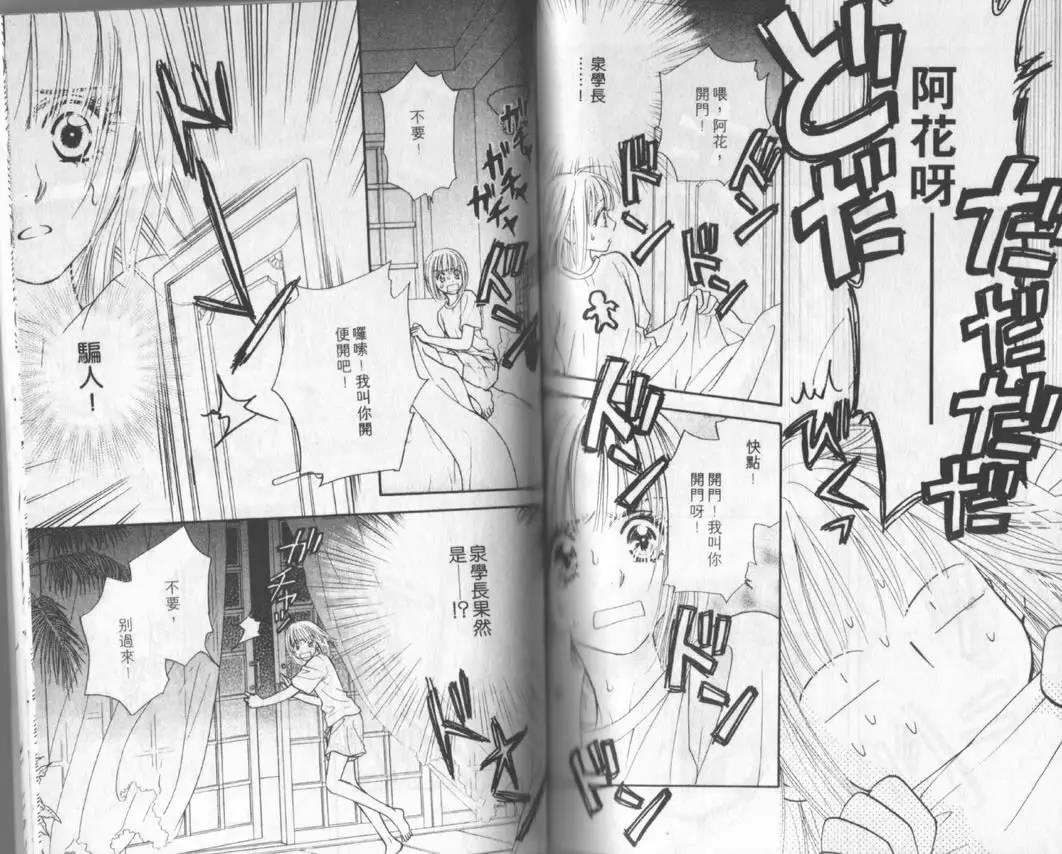 ど
ダダ
阿花呀——
ダダダダダ
喂，阿花，
開門！
泉學長
……！
ドンドンドン
快點！
開門！我叫你
開門呀！
ドンドンドン
ガチャガチャガチャ
不要！
ドンドン
囉嗦！我叫你開
便開吧！
ドンッ
騙人！
泉學長果然
是——!?
ガチャッ
不要，
別過來！